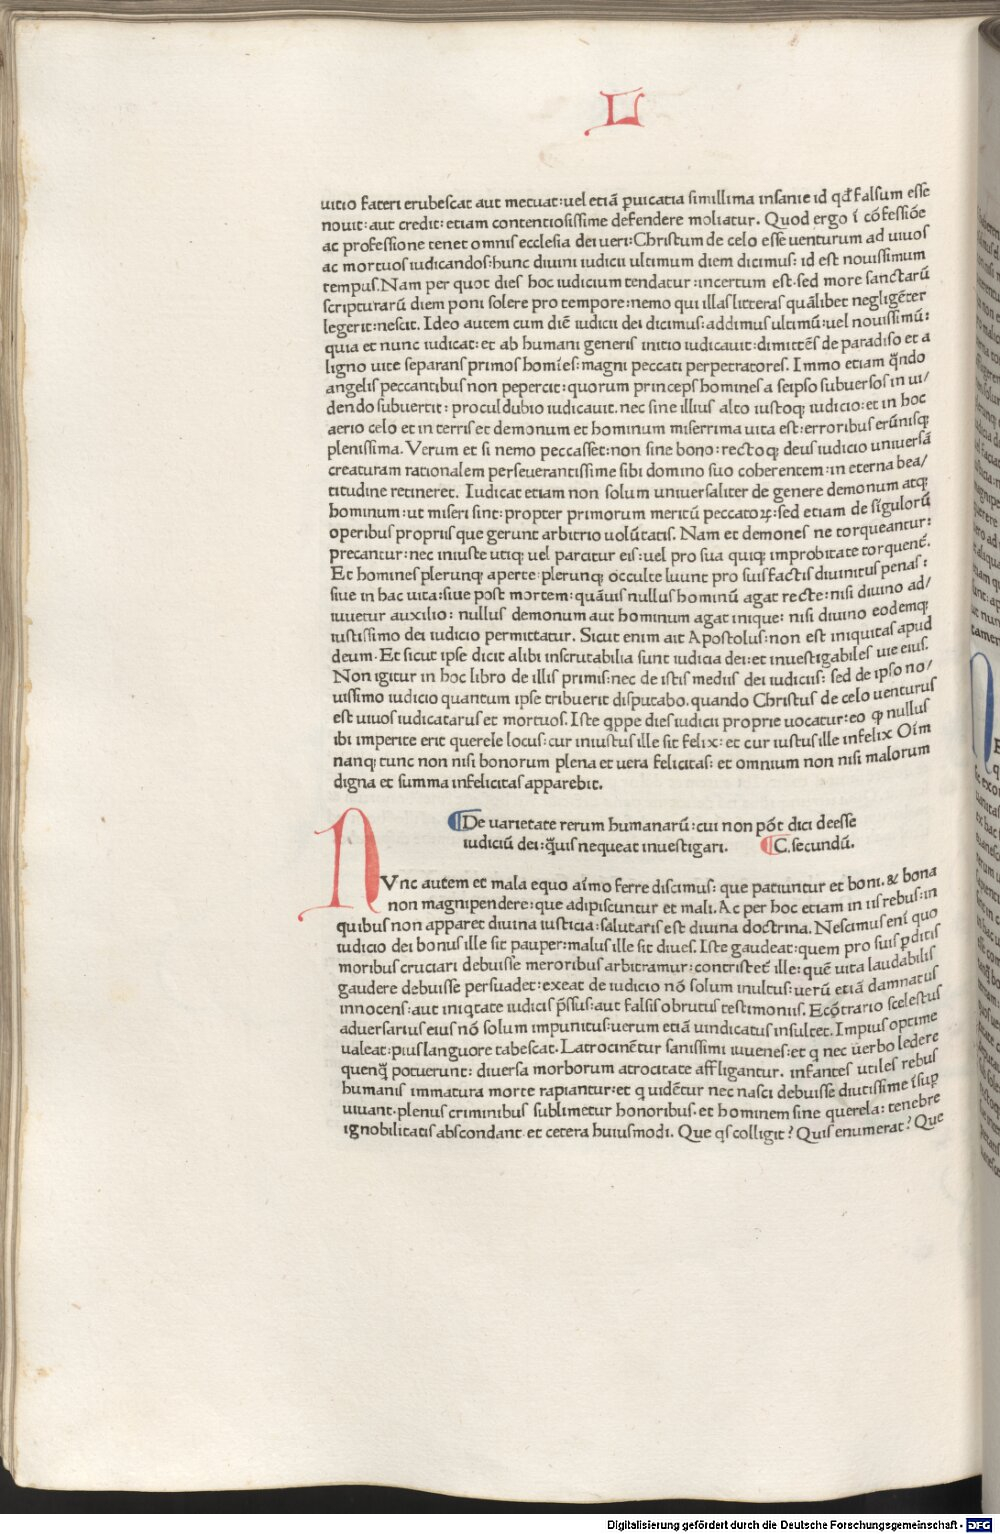 L
uitio fateri erubescat aut metuat: uel etiã ꝑuicatia simillima insanie id qđ falsum esse
nouit: aut credit: etiam contentiosissime defendere moliatur. Quod ergo ĩ cõfessiõe
ac professione tenet omnis ecclesia dei ueri: Christum de celo esse uenturum ad uiuos
ac mortuos iudicandos: hunc diuini iudicii ultimum diem dicimus: id est nouissimum
tempus. Nam per quot dies hoc iudicium tendatur: incertum est. sed more sanctarũ
scripturarũ diem poni solere pro tempore: nemo qui illas litteras quãlibet negligẽter
legerit: nescit. Ideo autem cum diẽ iudicii dei dicimus: addimus ultimũ: uel nouissimũ:
quia et nunc iudicat: et ab humani generis initio iudicauit: dimittẽs de paradiso et a
ligno uite separans primos homĩes: magni peccati perpetratores. Immo etiam qñdo
angelis peccantibus non pepercit: quorum princeps homines a seipso subuersos in ui/
dendo subuertit: procul dubio iudicauit. nec sine illius alto iustoqꝫ iudicio: et in hoc
aerio celo et in terris et demonum et hominum miserrima uita est: erroribus erũnisqꝫ
plenissima. Verum et si nemo peccasset: non sine bono: rectoqꝫ deus iudicio uniuersã
creaturam rationalem perseuerantissime sibi domino suo coherentem: in eterna bea/
titudine retineret. Iudicat etiam non solum uniuersaliter de genere demonum atqꝫ
hominum: ut miseri sint: propter primorum meritũ peccatoꝝ: sed etiam de sĩgulorũ
operibus propriis que gerunt arbitrio uolũtatis. Nam et demones ne torqueantur:
precantur: nec iniuste utiqꝫ uel parcitur eis: uel pro sua quiqꝫ improbitate torquent̃.
Et homines plerunqꝫ aperte plerunqꝫ occulte luunt pro suis factis diuinitus penas:
siue in hac uita: siue post mortem: quãuis nullus hominũ agat recte: nisi diuino ad/
iuuetur auxilio: nullus demonum aut hominum agat inique: nisi diuino eodemqꝫ
iustissimo dei iudicio permittatur. Sicut enim ait Apostolus: non est iniquitas apud
deum. Et sicut ipse dicit alibi inscrutabilia sunt iudicia dei: et inuestigabiles uie eius.
Non igitur in hoc libro de illis primis: nec de istis mediis dei iudiciis: sed de ipso no/
uissimo iudicio quantum ipse tribuerit disputabo. quando Christus de celo uenturus
est uiuos iudicatarus et mortuos. Iste qͥppe dies iudicii proprie uocatur: eo ꝙ nullus
ibi imperite erit querele locus: cur iniustus ille sit felix: et cur iustus ille infelix Oĩm
nanqꝫ tunc non nisi bonorum plena et uera felicitas: et omnium non nisi malorum
digna et summa infelicitas apparebit.
¶De uarietate rerum humanarũ: cui non põt dici deesse
iudiciũ dei: q̃uis nequeat inuestigari. ¶C. secundũ.
NVnc autem et mala equo aĩmo ferre discimus: que patiuntur et boni. & bona
non magnipendere: que adipiscuntur et mali. Ac per hoc etiam in iis rebus: in
quibus non apparet diuina iusticia: salutaris est diuina doctrina. Nescimus eni quo
iudicio dei bonus ille sit pauper: malus ille sit diues. Iste gaudeat: quem pro suis ꝑditis
moribus cruciari debuisse meroribus arbitramur: contristet̃ ille: quẽ uita laudabilis
gaudere debuisse persuadet: exeat de iudicio nõ solum inultus: uerũ etiã damnatus
innocens: aut iniqͥtate iudicis p̃ssus: aut falsis obrutus testimoniis. Ecõtrario scelestus
aduersarius eius nõ solum impunitus: uerum etiã uindicatus insultet. Impius optime
ualeat: pius languore tabescat. Latrocinẽtur sanissimi iuuenes: et q nec uerbo ledere
quenq̃ potuerunt: diuersa morborum atrocitate affligantur. infantes utiles rebus
humanis immatura morte rapiantur: et q uidẽtur nec nasci debuisse diutissime ĩsuꝑ
uiuant. plenus criminibus sublimetur honoribus. et hominem sine querela: tenebre
ignobilitatis abscondant. et cetera huiusmodi. Que qs colligit? Quis enumerat? Que
Digitalisierung gefördert durch die Deutsche Forschungsgemeinschaft - DFG